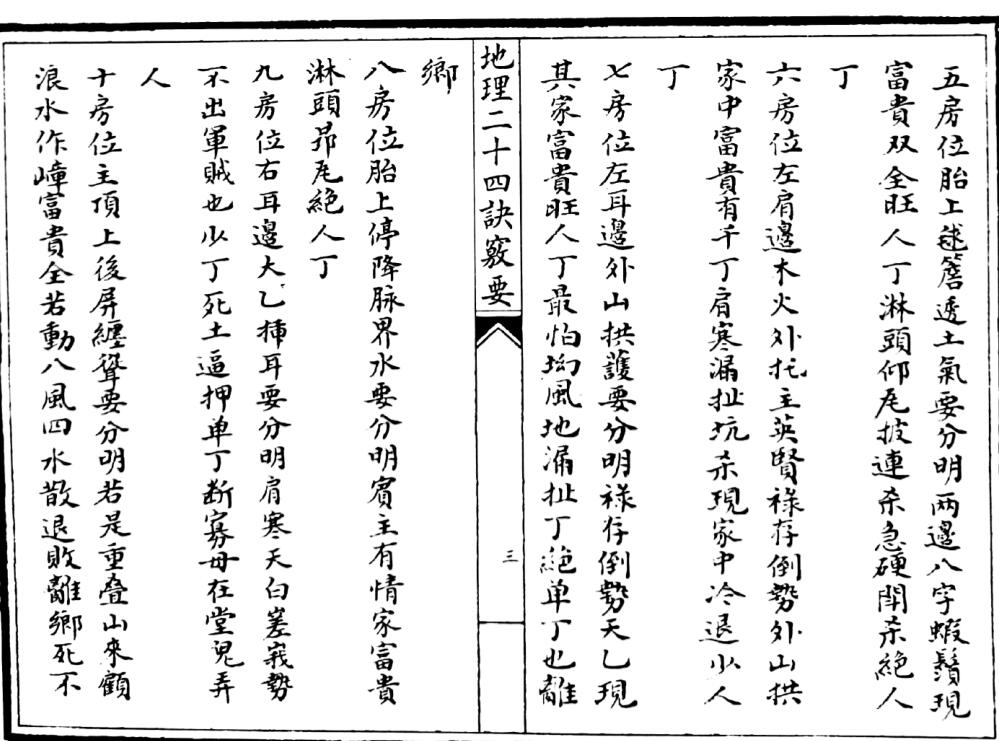 五房位胎上毬簷透土氣要分明两邊八字蝦鬚現
富貴双全旺人丁淋頭仰尾披連杀急硬閗杀絶人
丁
六房位左肩邊木火外托主英賢禄存倒勢外山拱
家中富貴有千丁肩寒漏扯坑杀現家中冷退少人
丁
七房位左耳邊外山拱護要分明禄存倒勢天乙現
其家富貴旺人丁最怕坳風地漏扯丁絶单丁也離
地理二十四訣竅要
三
鄉
八房位胎上停降脉界水要分明賓主有情家富貴
淋頭昂尾絶人丁
九房位右耳邊太乙揷耳要分明肩寒天白峩勢
不出軍賊也少丁死土逼押单丁断寡母在堂兒弄
人
十房位主頂上後屏纏聳要分明若是重叠山來顧
浪水作嶂富貴全若動八風四水散退敗離鄉死不